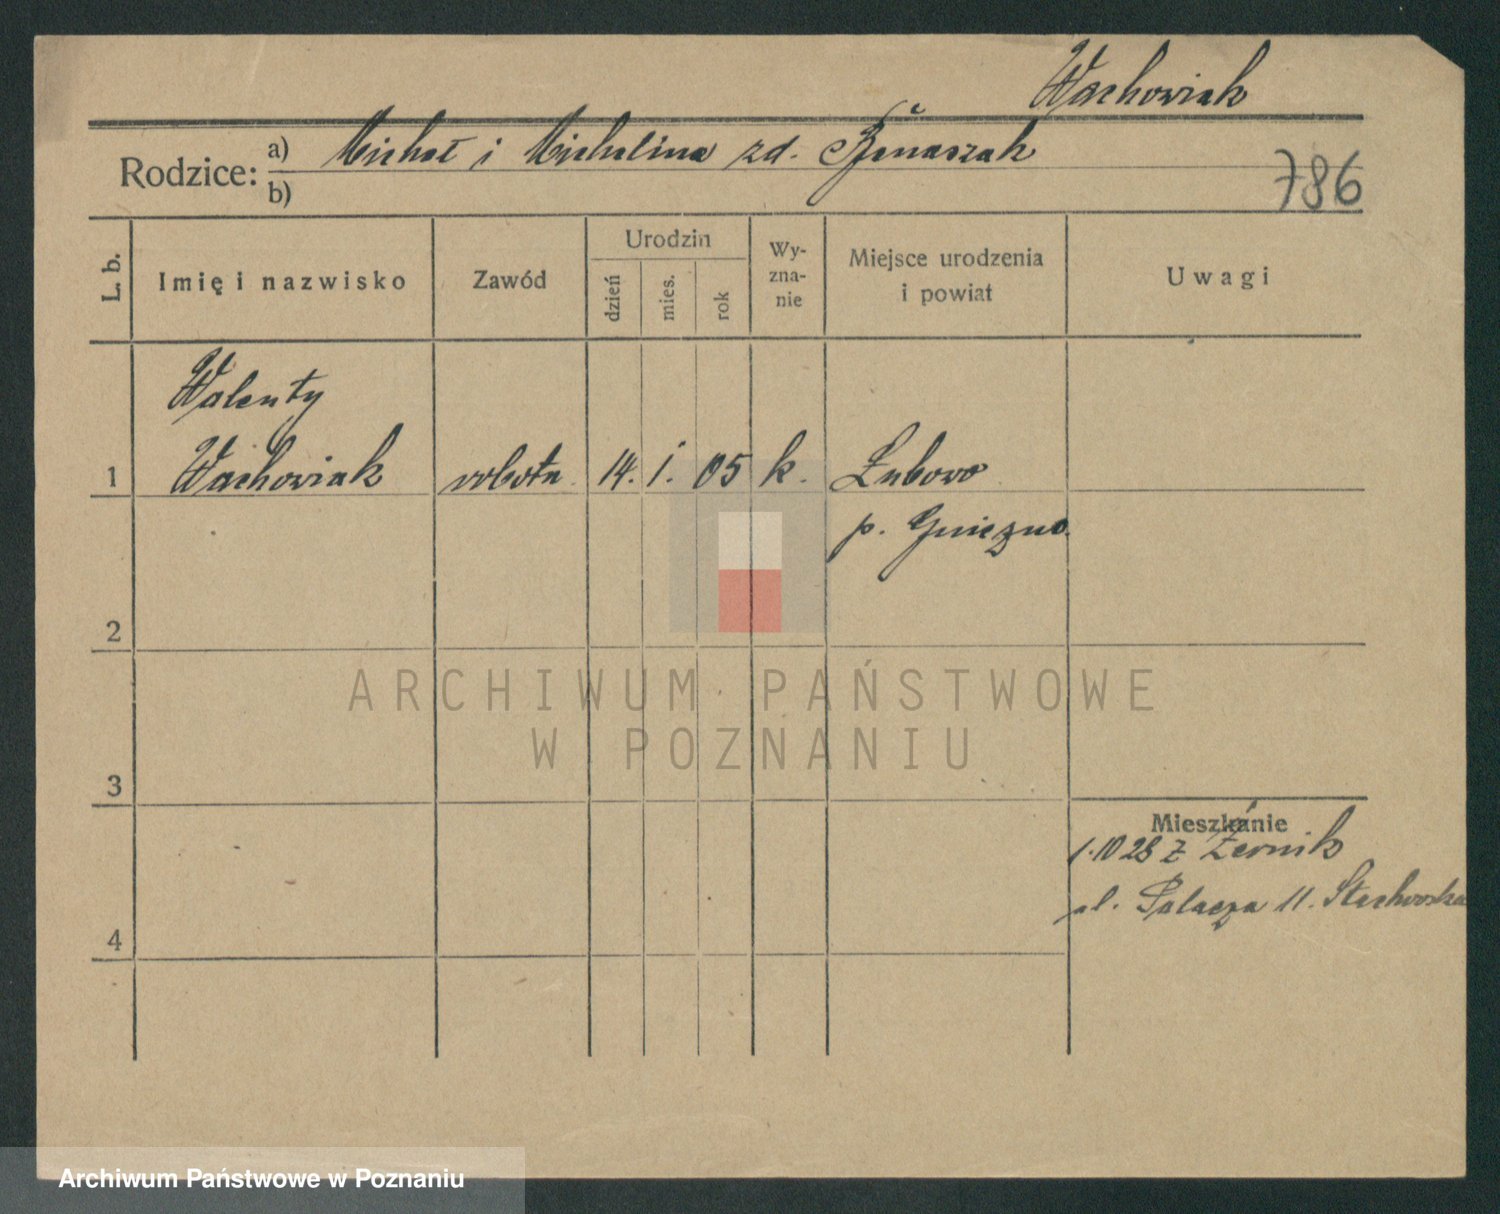 Wachowiak
Rodzice: a) Michał i Michalina zd. Banaszak
b)
786
L. b.
Imię i nazwisko
Zawód
Urodzin
dzień
mies.
rok
Wy-
zna-
nie
Miejsce urodzenia
i powiat
Uwagi
Walenty
1 Wachowiak robotn. 14. 1. 05 k. Łubowo
p. Gniezno.
2
ARCHIWUM PAŃSTWOWE
W POZNANIU
3
Mieszkanie
1.10 28 z Żernik
ul. Palacza 11.
4
Archiwum Państwowe w Poznaniu